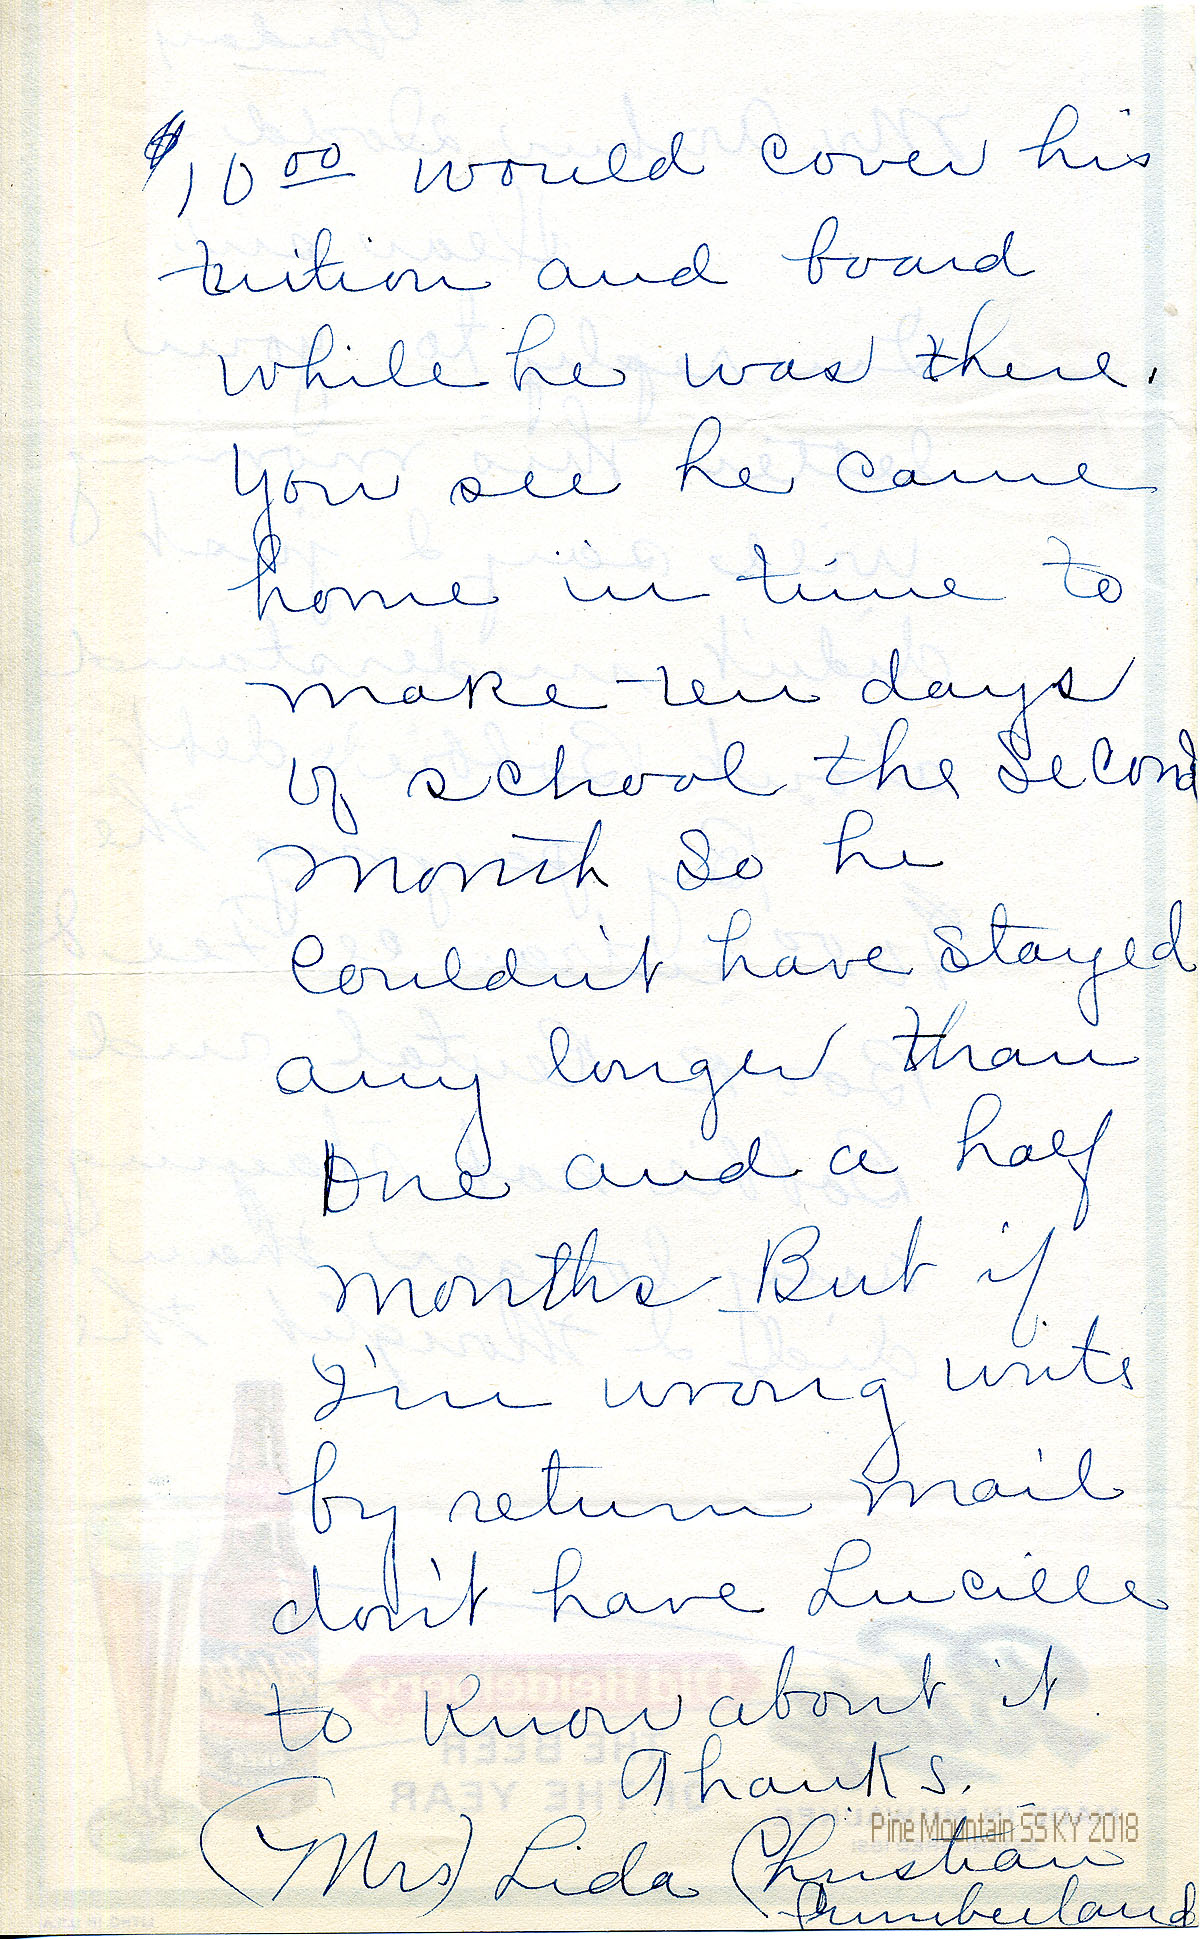 $10.00 would cover his
tuition and board
while he was there.
You see he came
home in time to
make ten days
of school the second
month So he
Couldn't have stayed
any longer than
One and a half
months - But if
I'm wrong write
by return mail
don't have Lucille
to Know about it.
Thanks.
(Mrs) Lida Christian
Cumberland
Pine Mountain SS KY 2018
THE BEER
OF THE YEAR